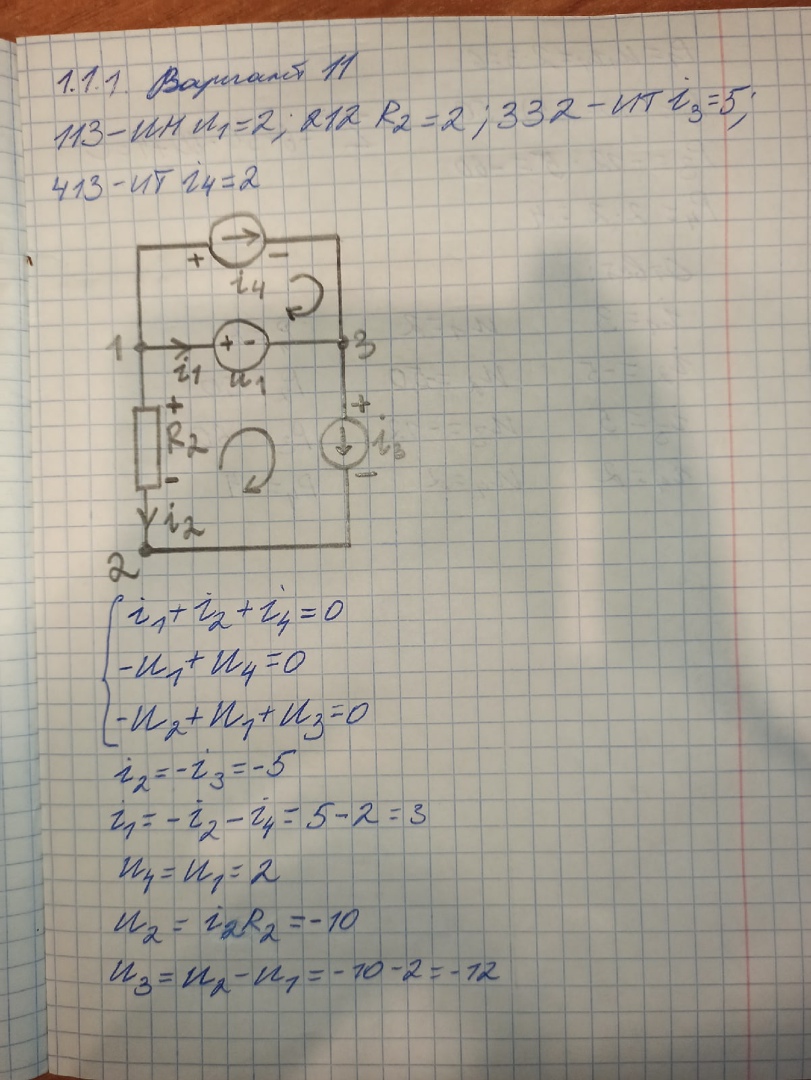 1.1.1. Вариант 11
113 - ИН u₁ = 2; 212 R₂ = 2; 332 - ИТ i₃ = 5;
413 - ИТ i₄ = 2
+ -
i₄
1 + - 3
i₁ u₁
+ +
R₂ i₃
- -
i₂
2
i₁ + i₂ + i₄ = 0
-u₁ + u₄ = 0
-u₂ + u₁ + u₃ = 0
i₂ = -i₃ = -5
i₁ = -i₂ - i₄ = 5 - 2 = 3
u₄ = u₁ = 2
u₂ = i₂R₂ = -10
u₃ = u₂ - u₁ = -10 - 2 = -12